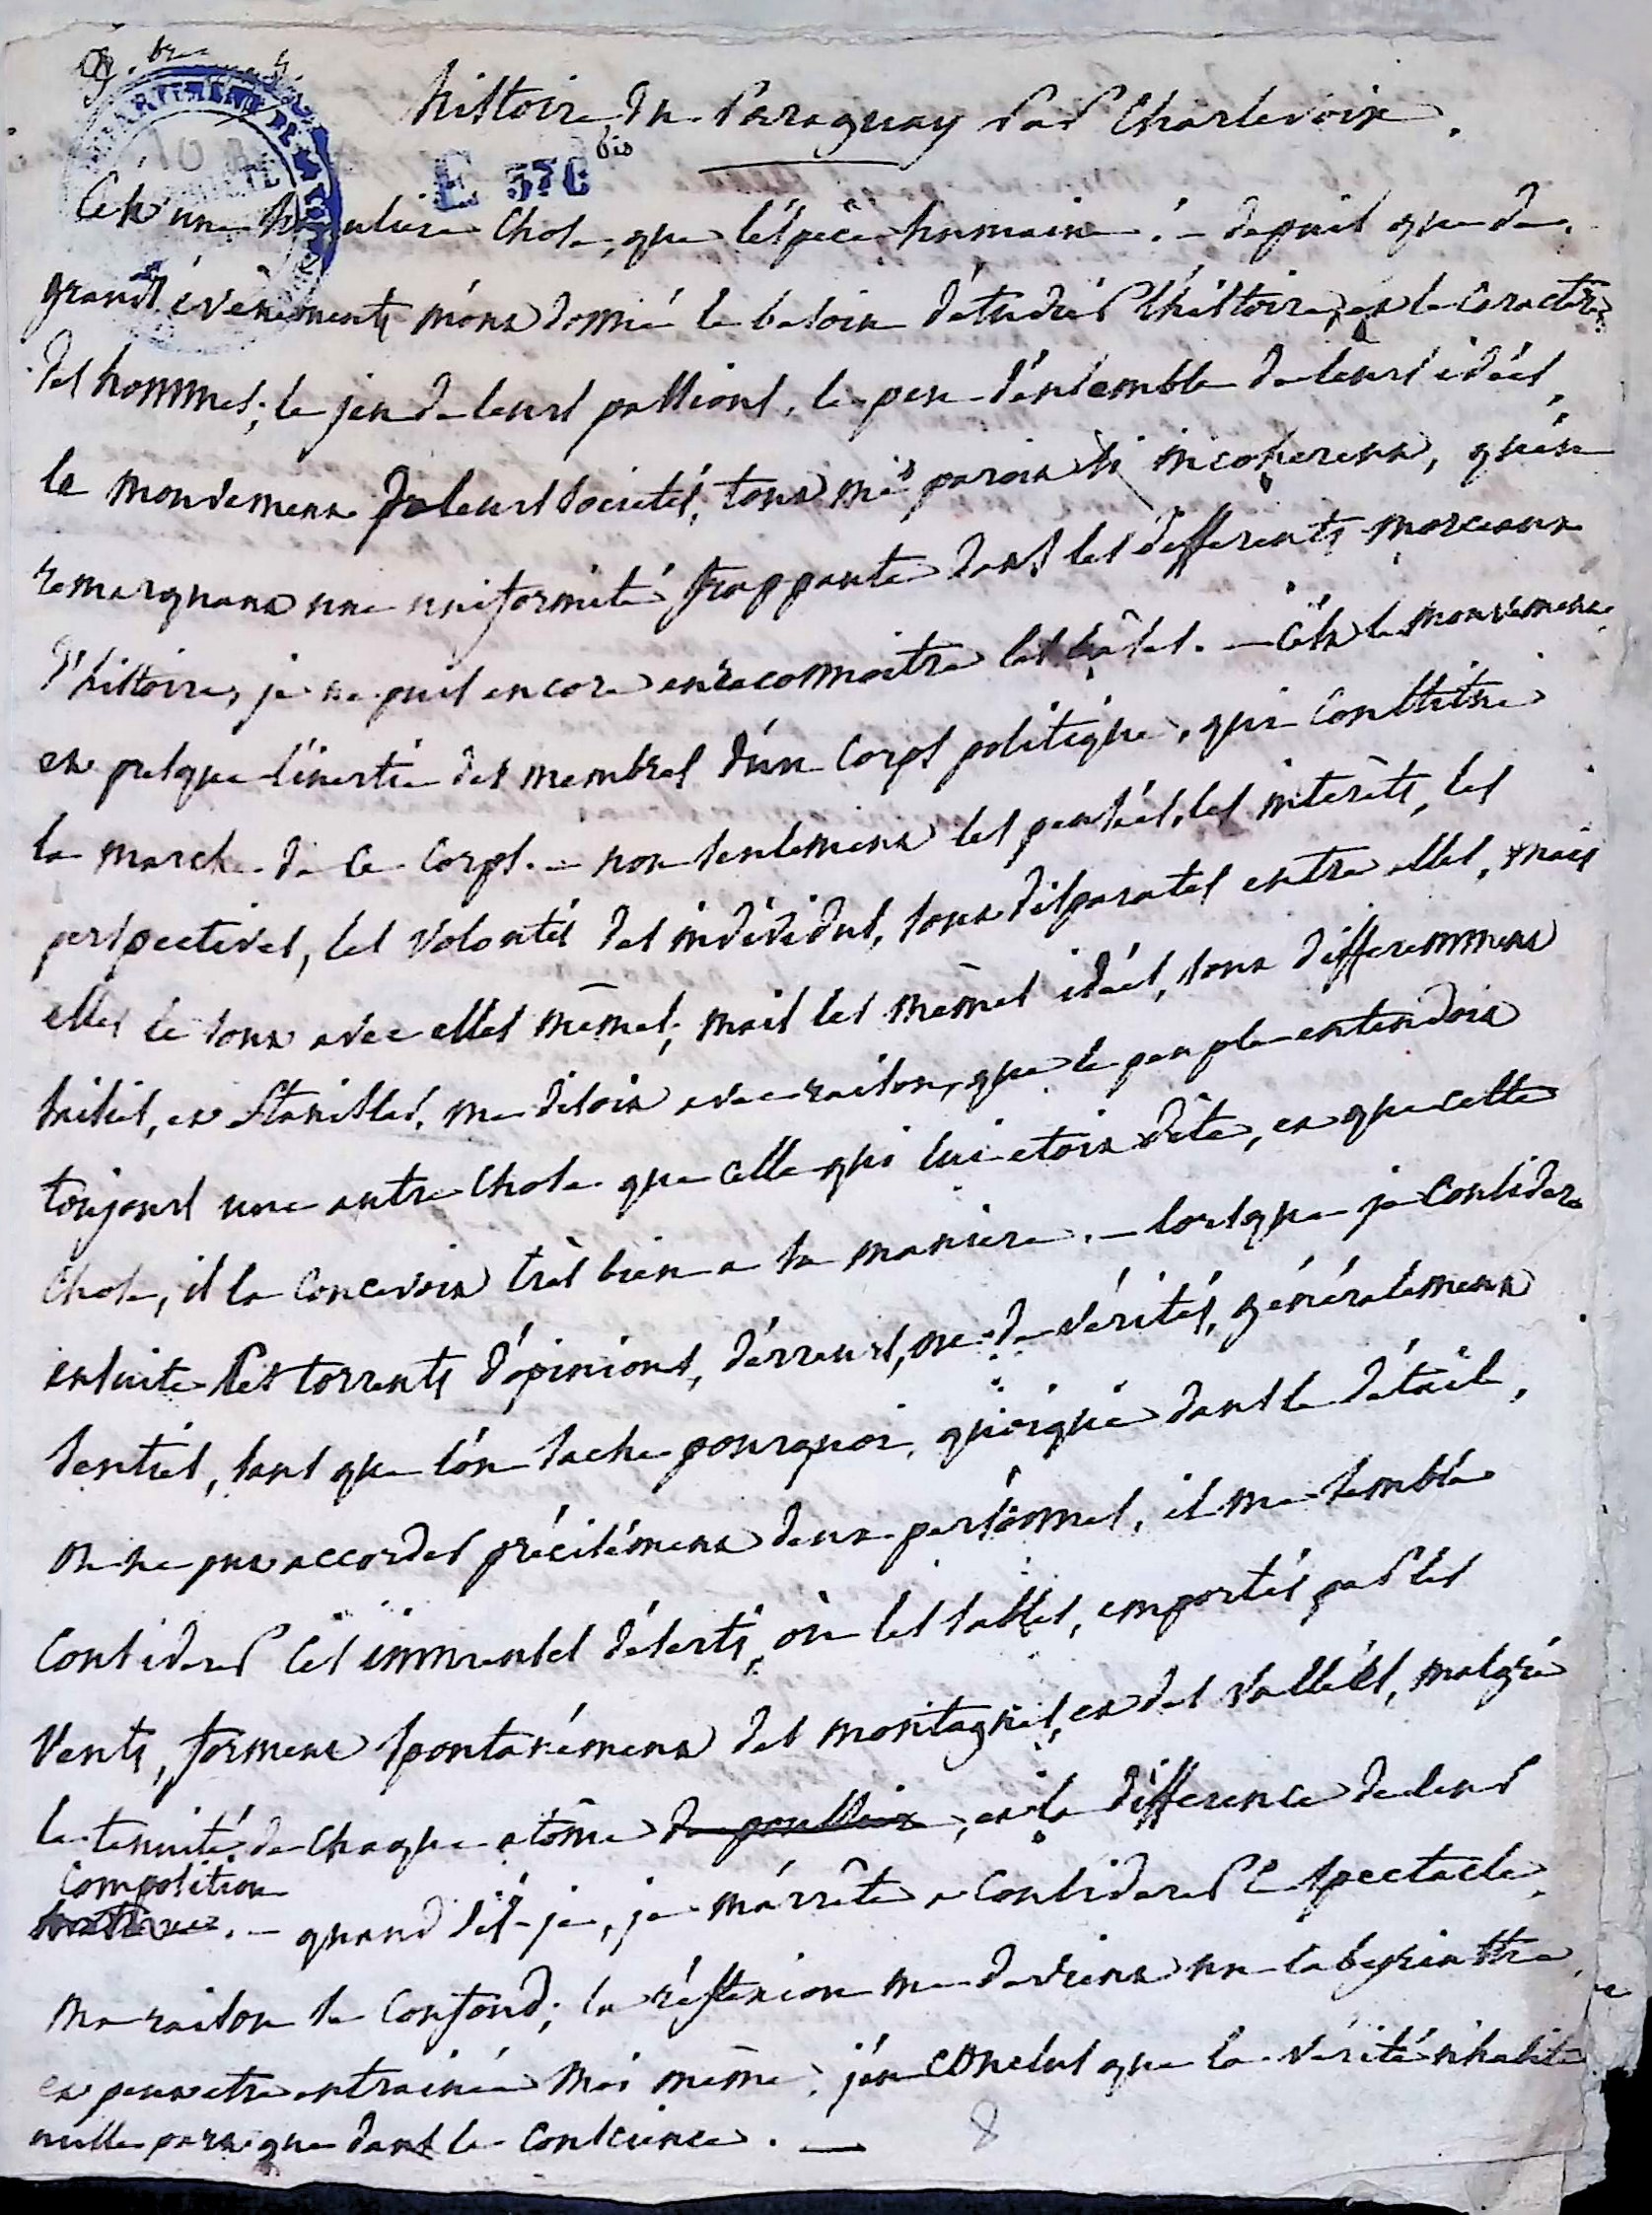 9.bre
histoire du Paraguay par Charlevoix.
E 376 bis
C'est une singuliere chose, que l'éspèce humaine. – depuis que de
grands évènements m'ont donné le besoin d'étudier l'histoire, et le caractere
des hommes; le jeu de leurs passions, le peu d'ensemble de leurs idées,
le mouvement de leurs sociétés, tout m'y paroit si incoherent, qu'en
remarquant une uniformité frappante dans les differents morceaux
d'histoire, je ne puis encore en reconnoitre les bases. – C'est le mouvement
et presque l'inertie des membres d'un corps politique, qui constitue
la marche de ce corps. – non seulement les pensées, les intérêts, les
perspectives, les volontés des individus, sont disparates entre elles, mais
elles le sont avec elles mêmes; mais les mêmes idées, sont differemment
saisies, et Stanislas, me disoit avec raison, que le peuple entendoit
toujours une autre chose que celle qui lui etoit dite, et que cette
chose, il la concevoit très bien a sa maniere. – lorsque je considere
ensuite les torrents d'opinions, d'érreurs, ou de vérités, généralement
senties, sans que l'on sache pourquoi, quoique dans le détail,
on ne put accorder précisément deux personnes, il me semble
considerer ces immenses déserts, où les sables, emportés par les
vents, forment spontanément des montagnes, et des vallées, malgré
la tenuité de chaque atôme de poussiere, et la difference de leur
composition
. – quand dis-je, je m'arrête a considerer ce spectacle,
ma raison se confond; la réflexion me devient un labyrinthe
et peut etre entrainée moi même, j'en conclus que la vérité n'habite
nulle part que dans la conscience. –
8